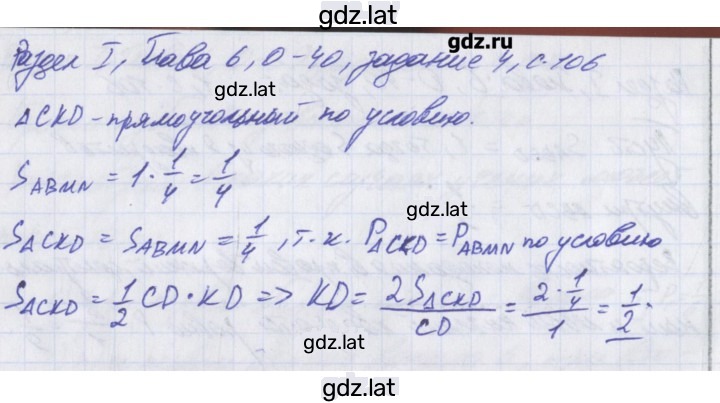 gdz.lat
gdz.ru
Раздел I, Глава 6, О-40, задание 4, с. 106
ΔCKD - прямоугольный по условию.
S_ABMN = 1 · 1/4 = 1/4
gdz.lat
S_ΔCKD = S_ABMN = 1/4, т.к. P_ΔCKD = P_ABMN по условию
S_ΔCKD = 1/2 CD · KD => KD = 2S_ΔCKD/CD = (2 · 1/4)/1 = 1/2.
gdz.lat
gdz.lat